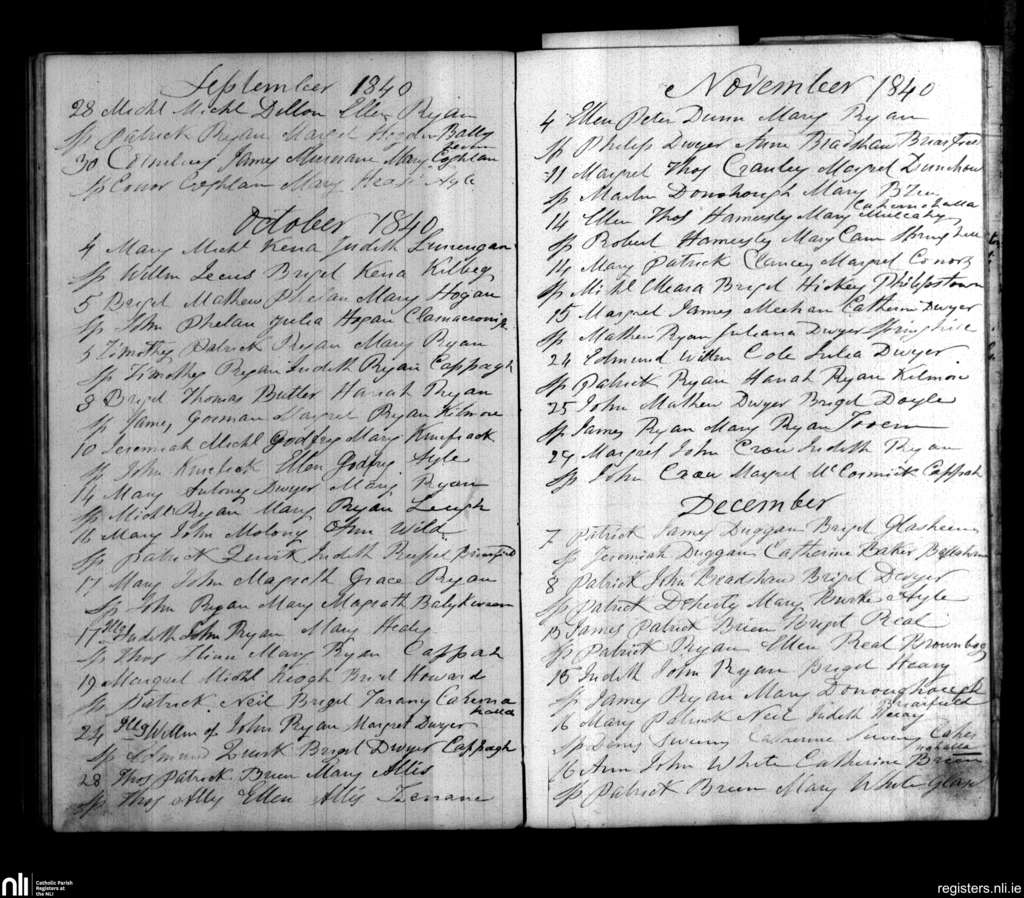 September 1840
28 Michl Michl Dillon Ellen Ryan
Sp Patrick Ryan Margret Hogan Bally
30 Cornelius James Murnane Mary Coghlan
Sp Conor Coghlan Mary Ayle
October 1840
4 Mary Michl Kena Judith
Sp Willm Brigd Kena Kilbeg
5 Briget Mathew Phelan Mary Hogan
Sp John Phelan Julia Hogan
5 Timothy Patrick Ryan Mary Ryan
Sp Timothy Ryan Judith Ryan Cappagh
8 Briget Thomas Butler Hanah Ryan
Sp James Gorman Margret Ryan Kilmore
10 Jeremiah Michl Godfrey Mary
Sp John Ellen Godfrey Ayle
14 Mary Antony Dwyer Mary Ryan
Sp Michl Ryan Mary Ryan
16 Mary John Molony Ann Wild
Sp Patrick Quirk Judith
17 Mary John Magrath Grace Ryan
Sp John Ryan Mary Magrath
17 Illeg Judith John Ryan Mary
Sp Thos Mary Ryan Cappah
19 Margret Michl Keogh Howard
Sp Patrick Neil Briget Caherna
halla
24 Illeg Willm of John Ryan Margret Dwyer
Sp Edmund Quirk Briget Dwyer Cappagh
28 Thos Patrick Brien Mary Allis
Sp Thos Ally Ellen Allis
November 1840
4 Ellen Peter Dunn Mary Ryan
Sp Philip Dwyer Anne Bradshaw
11 Margret Thos Cranley Margret
Sp Martin Donohough Mary
Cahernahalla
14 Ellen Thos Hamersly Mary Mulcahy
Sp Robert Hamersly Mary Spring hill
14 Mary Patrick Clancey Margret Conors
Sp Michl Meara Briget Hickey Philipstown
15 Margret James Meehan Catherin Dwyer
Sp Mathew Ryan Juliana Dwyer Spring hill
24 Edmund Willm Cole Julia Dwyer
Sp Patrick Ryan Hanah Ryan Kilmore
25 John Mathew Dwyer Briget Doyle
Sp James Ryan Mary Ryan
29 Margret John Crow Judith Ryan
Sp John Crow Margret McCormick Cappah
December
7 Patrick James Duggan Briget Glasheen
Sp Jeremiah Duggan Catherine Baker
8 Patrick John Bradshaw Briget Dwyer
Sp Patrick Doherty Mary Burke Ayle
13 James Patrick Brien Briget Real
Sp Patrick Ryan Ellen Real Brownbog
15 Judith John Ryan Briget Heany
Sp James Ryan Mary Donoughough
Briarfield
16 Mary Patrick Neil Judith
Sp Denis Sweeny Catherine Sweeny Caher
nahalla
16 Ann John White Catherine Brien
Sp Patrick Brien Mary White
nli
Catholic Parish
Registers at
the NLI
registers.nli.ie